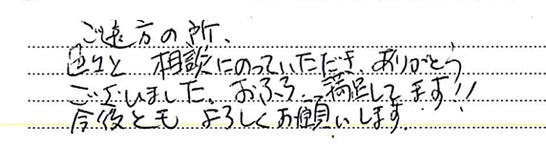 ご遠方の所、
色々と 相談にのっていただき、ありがとう
ございました。おふろ、満足してます!!
今後とも よろしくお願いします。